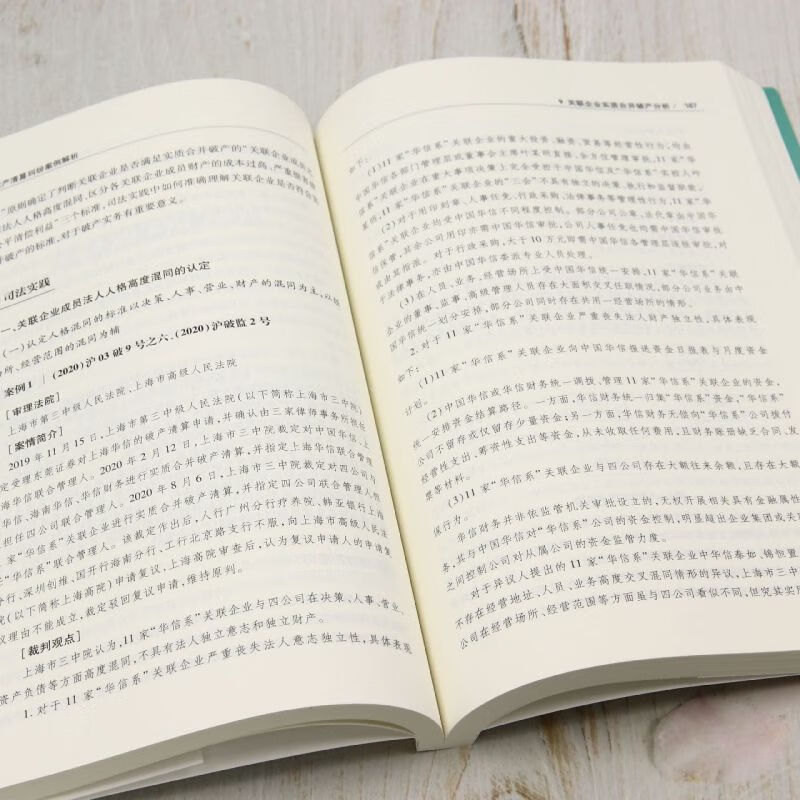 产清算纠纷案例解析
”原则确定了判断关联企业是否满足实质合并破产的“关联企业成员之
法人人格高度混同、区分各关联企业成员财产的成本过高、严重损害债
平清偿利益”三个标准，司法实践中如何准确理解关联企业是否符合实
并破产的标准，对于破产实务有重要意义。
司法实践
一、关联企业成员法人人格高度混同的认定
（一）认定人格混同的标准以决策、人事、营业、财产的混同为主，以经
所、经营范围的混同为辅
案例1 （2020）沪03破9号之六、（2020）沪破监2号
[审理法院]
上海市第三中级人民法院、上海市高级人民法院
[案情简介]
2019年11月15日，上海市第三中级人民法院（以下简称上海市三中院）
定受理东莞证券对上海华信的破产清算申请，并确认由三家律师事务所担任
海华信联合管理人。2020年2月12日，上海市三中院裁定对中国华信、上
华信、海南华信、华信财务进行实质合并破产清算，并指定上海华信联合管理
担任四公司联合管理人。2020年8月6日，上海市三中院裁定对四公司与
家“华信系”关联企业进行实质合并破产清算，并指定四公司联合管理人担
“华信系”联合管理人。该裁定作出后，人行广州分行疗养院、韩亚银行上海
分行、深圳创维、国开行海南分行、工行北京路支行不服，向上海市高级人民
院（以下简称上海高院）申请复议，上海高院审查后，认为复议申请人的申请复
议理由不能成立，裁定驳回复议申请，维持原判。
[裁判观点]
上海市三中院认为，11家“华信系”关联企业与四公司在决策、人事、营业、
资产负债等方面高度混同，不具有法人独立意志和独立财产。
1. 对于11家“华信系”关联企业严重丧失法人意志独立性，具体表现
9 关联企业实质合并破产分析 / 167
如下：
（1）11家“华信系”关联企业的重大投资、融资、贸易等经营性行为，均由
中国华信各部门管理层或董事会主席叶某明直接、全方位管理审批，11家“华信
系”关联企业在重大事项的决策上完全受控于中国华信及“华信系”实控人叶
某明，11家“华信系”关联企业的“三会”不具有独立的决策、执行和监督职能。
（2）对于用印刻章、人事任免、行政采购、法律事务等管理性行为，11家“华
信系”关联企业均受中国华信不同程度控制。部分公司公章、法代章由中国华
信保管，其余公司用印亦需中国华信审批，公司人事任免也均需中国华信审批
或由其指派。对于行政采购，大于10万元即需中国华信各管理层逐级审批，对
于法律事务，亦由中国华信委派专业人员处理。
（3）在人员、业务、经营场所上受中国华信统一安排，11家“华信系”关联
企业的董事、监事、高级管理人员存在大面积交叉任职情况，部分公司业务由中
国华信统一划分安排，部分公司同时存在共用一经营场所的情形。
2. 对于11家“华信系”关联企业严重丧失法人财产独立性，具体表现
如下：
（1）11家“华信系”关联企业向中国华信报送资金日报表与月度资金
计划。
（2）中国华信或华信财务统一调拨、管理11家“华信系”关联企业的资金，
统一安排资金结算路径。一方面，华信财务统一归集“华信系”资金，“华信系”
公司不留存或仅留存少量资金；另一方面，华信财务无偿向“华信系”公司拨付
经营性支出、筹资性支出等资金，从未收取任何费用，且财务账册缺乏合同、发
票等材料。
（3）11家“华信系”关联企业与四公司存在大额往来余额，且存在大额
保行为。
华信财务并非依监管机关审批设立的，无权开展相关具有金融属性
务，其与中国华信对“华信系”公司的资金控制，明显超出企业集团或关
之间控制公司对从属公司的资金监管力度。
对于异议人提出的11家“华信系”关联企业中华信泰如、锡恒置
不存在经营地址、人员、业务高度交叉混同情形的异议，上海市三中
公司在经营场所、经营范围等方面虽与四公司看似不同，但究其实质